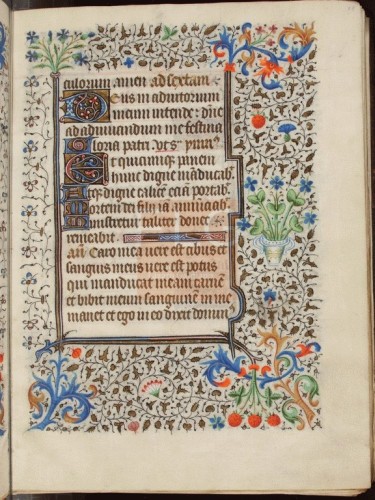 culorum amen ad sextam
Deus in adiutorium
meum intende: dne
ad adiuvandum me festina
Gloria patri
Et quicumque panem
hunc digne manducab.
Atq digne calice etiam portab.
Mortem dei filii iam annuciab.
ministretur taliter donec
veniebit
an. Caro mea vere est cibus et
sanguis meus vere est potus
qui manducat meam carne
et bibit meum sanguine in me
manet et ego in eo dixit domin